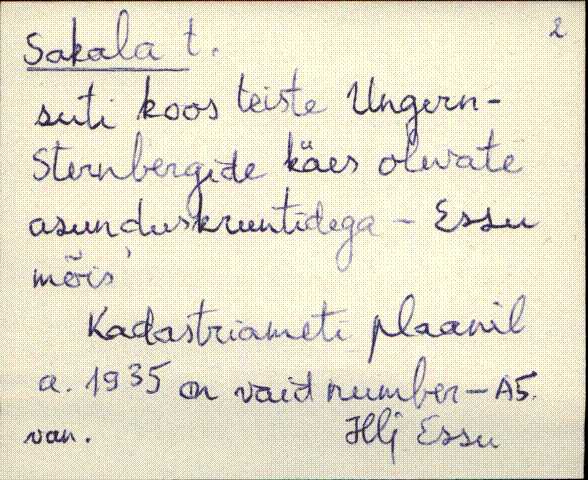 2
Sakala t.
suti koos teiste Ungern-
Sternbergide käes olevate
asunduskruntidega - Essu
mõis
Kadastriameti plaanil
a. 1935 on vaid number - A5.
van. Hlj Essu